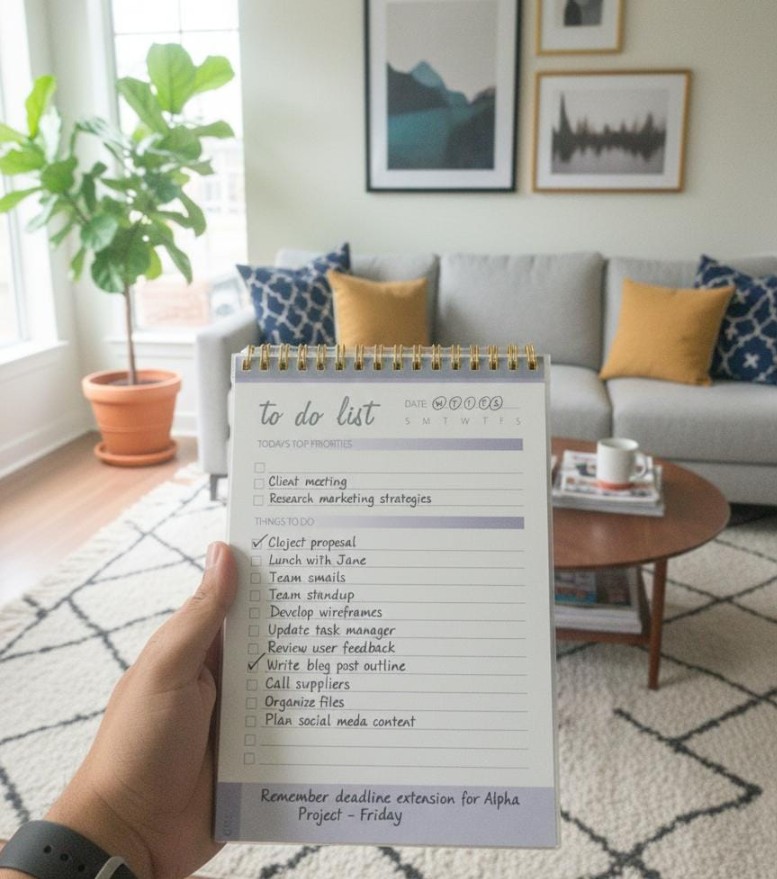 to do list
DATE: W T I T S
S M T W T F S
TODAY'S TOP PRIORITIES
Client meeting
Research marketing strategies
THINGS TO DO
Cloject propesal
Lunch with Jane
Team smails
Team standup
Develop wireframes
Update task manager
Review user feedback
Write bleg post outline
Call suppliers
Organize files
Plan social meda content
Remember deadline extension for Alpha
Project - Friday